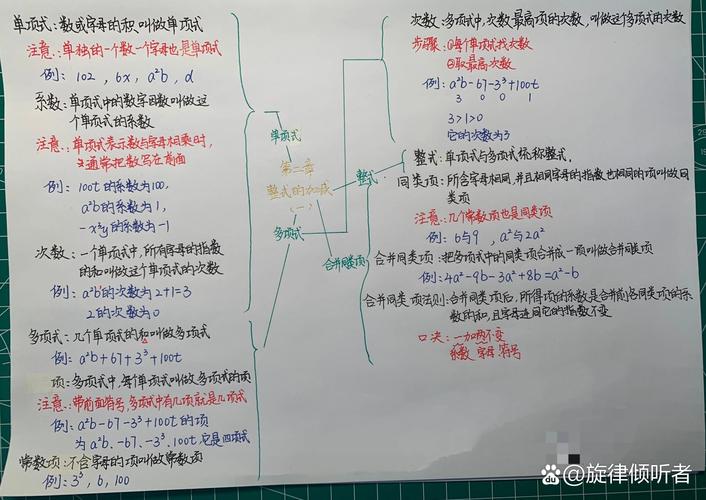 单项式:数或字母的积叫做单项式
注意:单独的一个数一个字母也是单项式
例:102,6x,a²b,d
系数:单项式中的数字因数叫做这
个单项式的系数
注意:单项式表示数与字母相乘时,
通常把数写在前面
例:100t的系数为100,
a²b的系数为1,
-x²y的系数为-1
次数:一个单项式中,所有字母的指数
的和叫做这个单项式的次数
例:a²b的次数为2+1=3
2的次数为0
多项式:几个单项式的和叫做多项式
例:a²b+67+3³+100t
项:多项式中,每个单项式叫做多项式的项
注意:带前面符号,多项式中有几项就是几项式
例:a²b-67-3³+100t的项
为a²b.-67.-3³.100t它是四项式
常数项:不含字母的项叫做常数项
例:3³,6,100
单项式
第二章
整式的加减
(一)
多项式
整式
合并同类项
次数:多项式中,次数最高项的次数,叫做这个多项式的次数
步骤:①每个单项式找次数
②取最高次数
例:a²b-67-3³+100t
3 0 0 1
3>1>0
它的次数为3
整式:单项式与多项式统称整式.
同类项:所含字母相同,并且相同字母的指数也相同的项叫做同
类项
注意:几个常数项也是同类项
例:6与9,a²与2a²
合并同类项:把多项式中的同类项合并成一项叫做合并同类项
例:4a²-9b-3a²+8b=a²-b
合并同类项法则:合并同类项后,所得项的系数是合并前各同类项的系
数的和,且字母连同它的指数不变
口决:一加两不变
系数 字母.符号
旋律倾听者